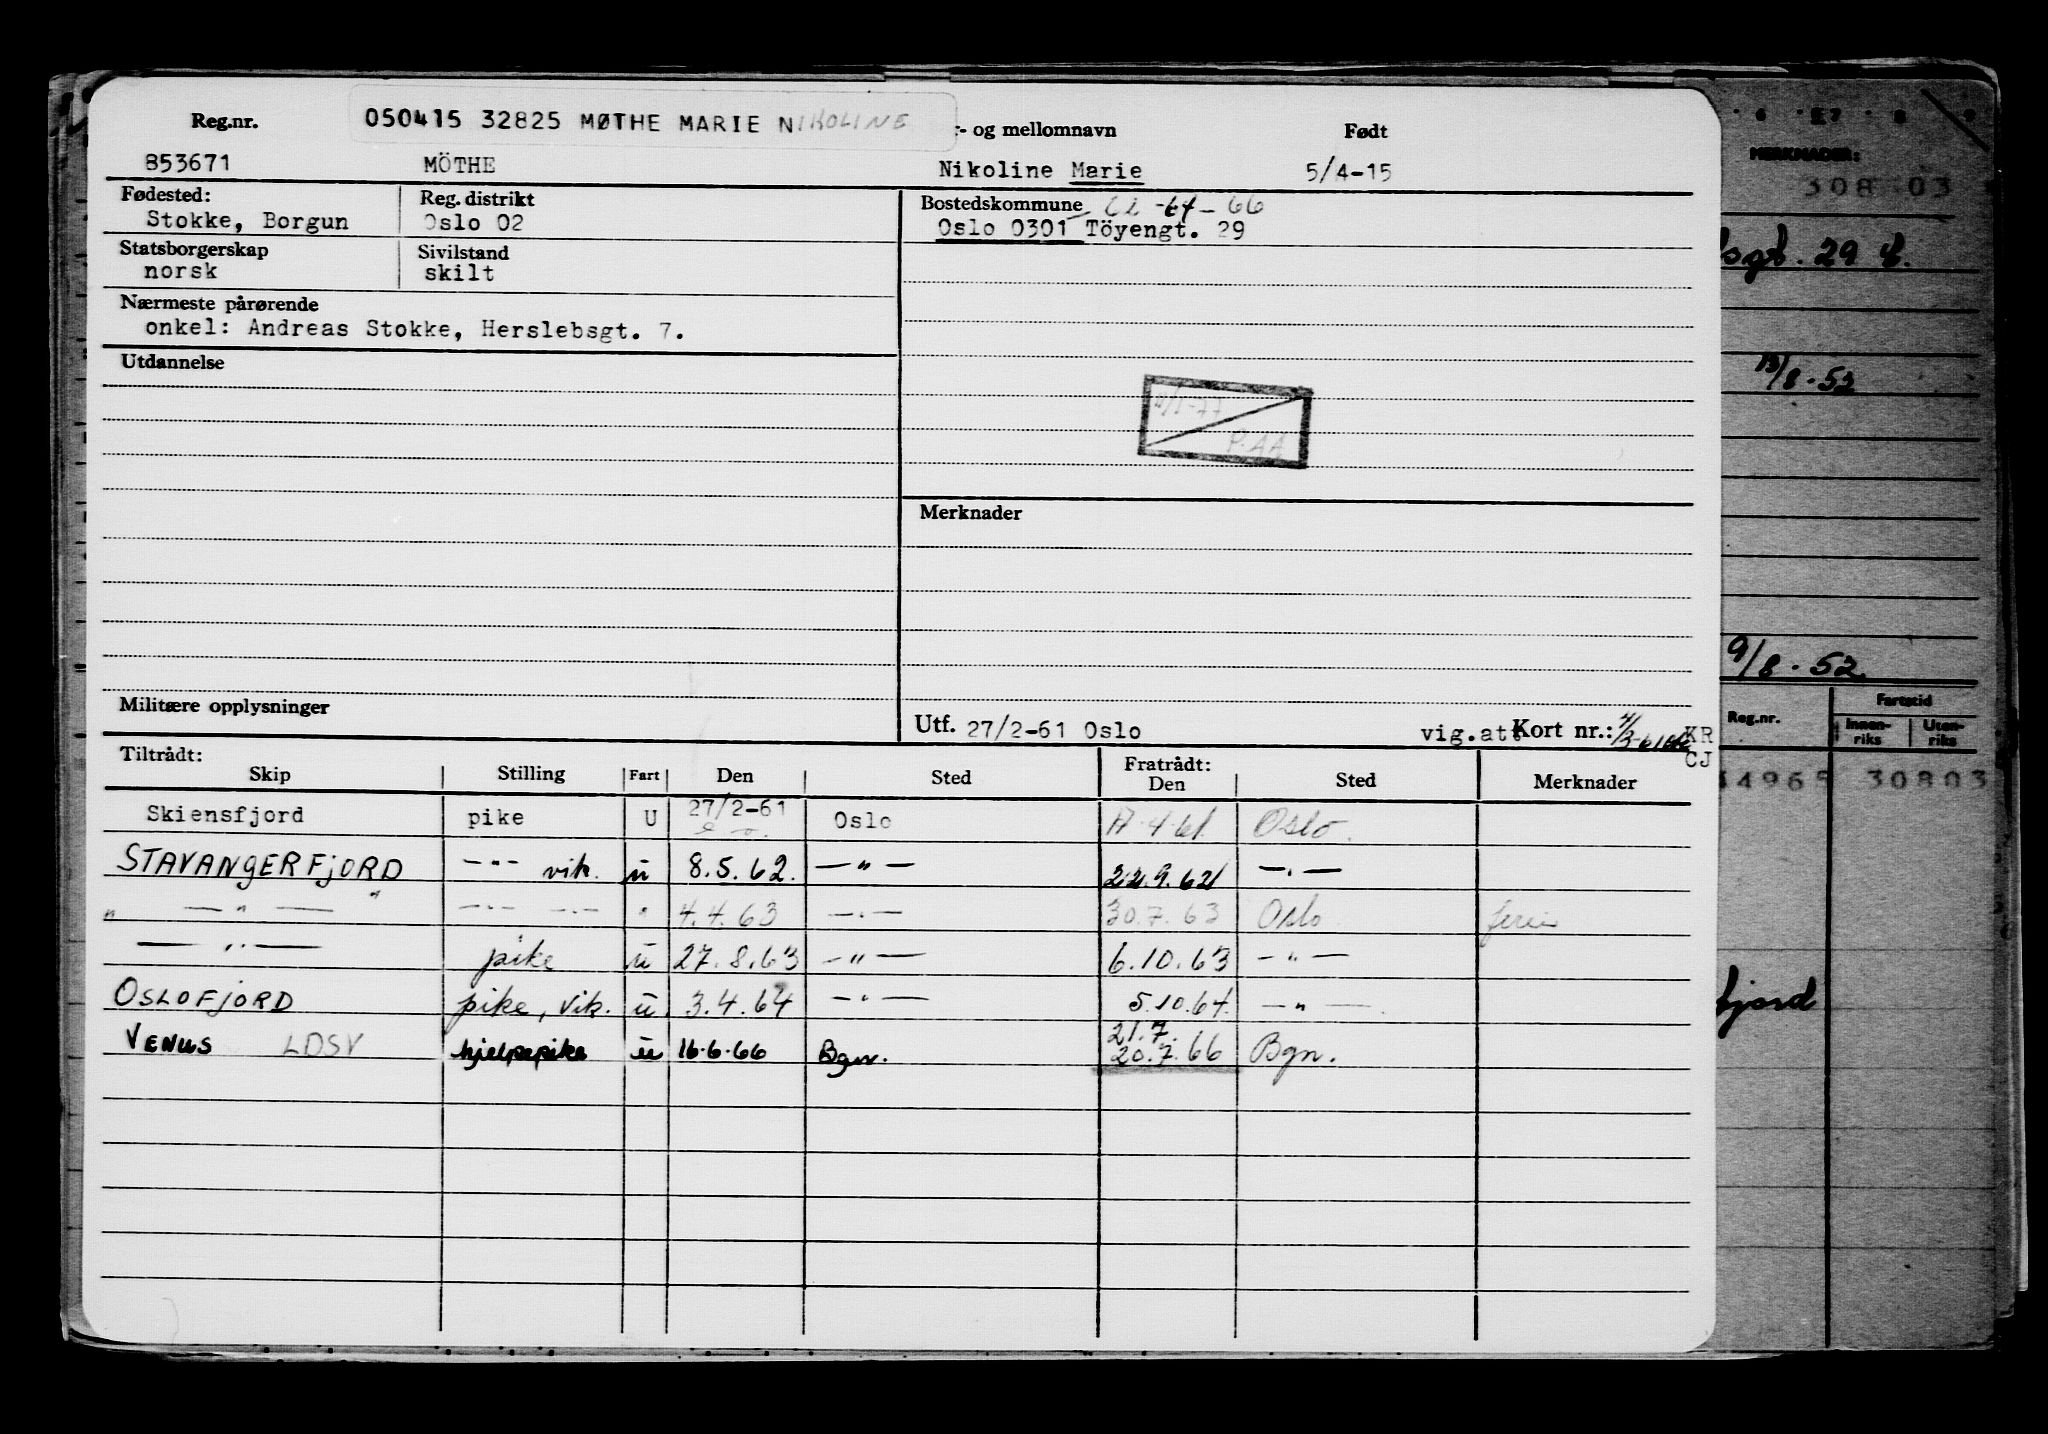 Reg.nr. 050415 32825 MØTHE MARIE NIKOLINE - og mellomnavn Født
853671 MÖTHE Nikoline Marie 5/4-15
Fødested: Reg. distrikt Bostedskommune 62 - 64 - 66
Stokke, Borgun Oslo 02 Oslo 0301 Töyengt. 29
Statsborgerskap Sivilstand
norsk skilt
Nærmeste pårørende
onkel: Andreas Stokke, Herslebsgt. 7.
Utdannelse
P. AA
Merknader
Militære opplysninger
Utf. 27/2-61 Oslo vig.att Kort nr.: KR
CJ
Tiltrådt: Fratrådt:
Skip Stilling Fart Den Sted Den Sted Merknader
Skiensfjord pike U 27/2-61 Oslo 17.4.61 Oslo.
STAVANGERFJORD — " — vik. u 8.5.62. — " — 22.9.62 — " —
" — " — " — " — — " — " 4.4.63 — " — 30.7.63 Oslo ferie
— " — pike u 27.8.63 — " — 6.10.63 — " —
OSLOFJORD pike, vik. u 3.4.64 — " — 5.10.64. — " —
21.7.
VENUS LDSV hjelpepike u 16.6.66 Bgn. 20.7.66 Bgn.
MERKNADER:
308 03
sgt. 29
13/8-52
9/8-52.
Fartstid
Reg.nr. Innen-riks Uten-riks
34965 30803
fjord